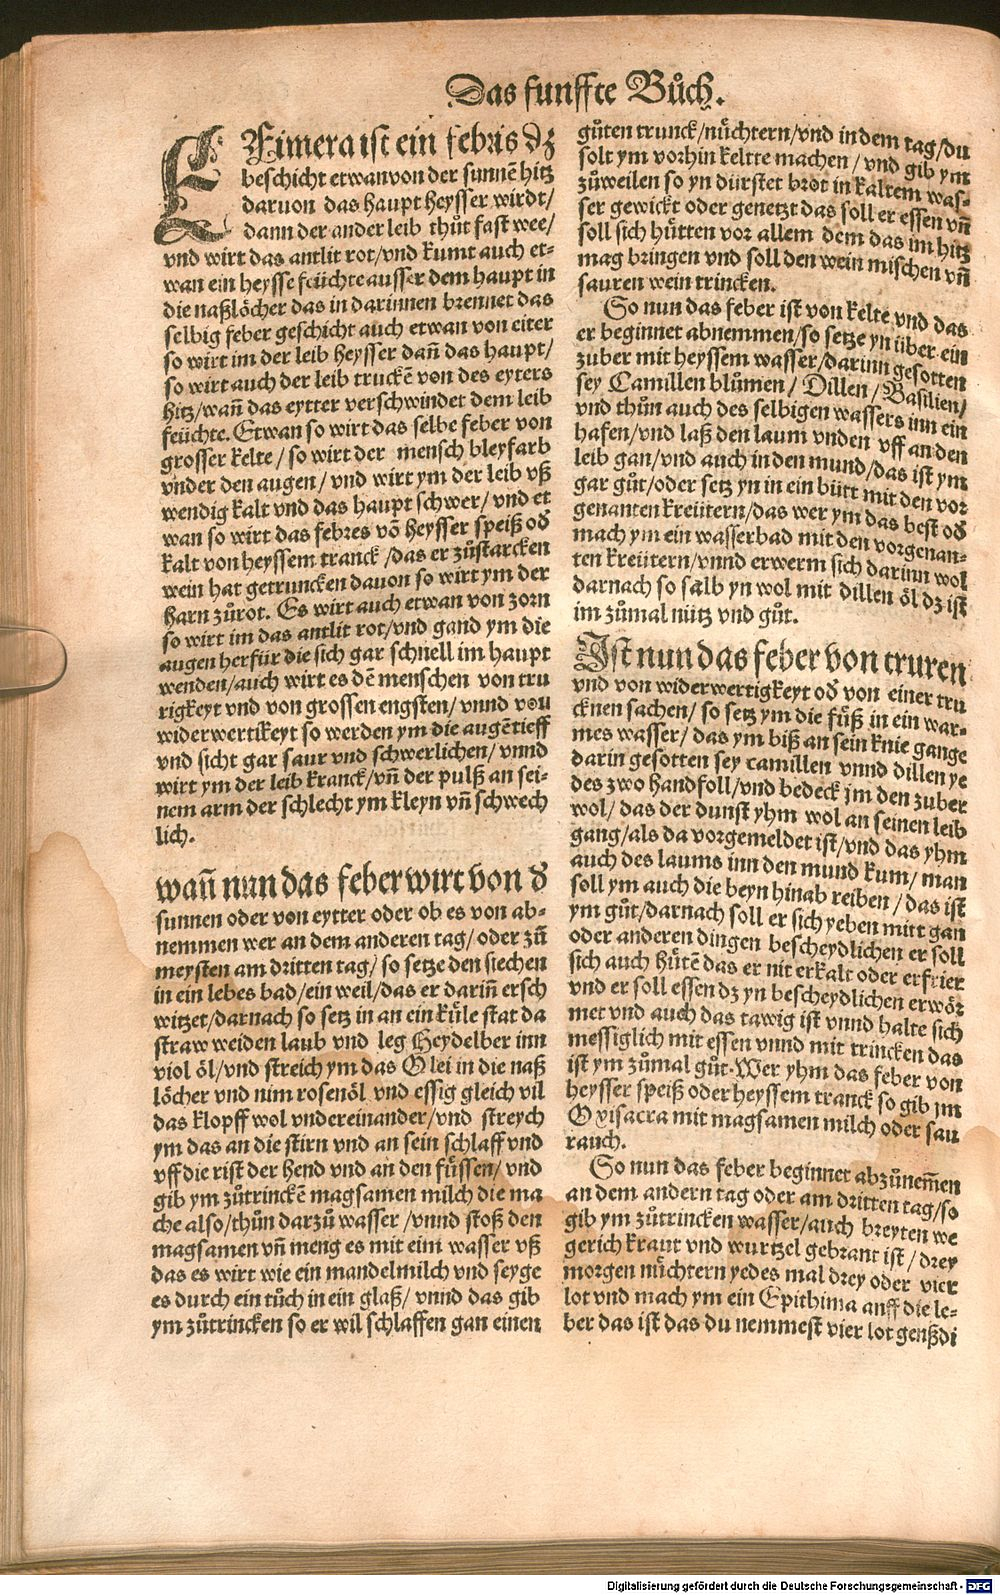 Das funffte Bůch.
EFimera ist ein febris dz
beschicht etwan von der sunnē hitz
daruon das haupt heysser wirdt/
dann der ander leib thůt fast wee/
vnd wirt das antlit rot/vnd kumt auch et-
wan ein heysse feüchte ausser dem haupt in
die naßlöcher das in darinnen brennet das
selbig feber geschicht auch etwan von eiter
so wirt im der leib heysser dañ das haupt/
so wirt auch der leib truckē von des eyters
hitz/wañ das eytter verschwindet dem leib
feüchte. Etwan so wirt das selbe feber von
grosser kelte/so wirt der mensch bleyfarb
vnder den augen/vnd wirt ym der leib vß
wendig kalt vnd das haupt schwer/vnd et
wan so wirt das febres võ heysser speiß od
kalt von heyssem tranck/das er zůstarcken
wein hat getruncken dauon so wirt ym der
harn zůrot. Es wirt auch etwan von zorn
so wirt im das antlit rot/vnd gand ym die
augen herfür die sich gar schnell im haupt
wenden/auch wirt es dē menschen von tru
rigkeyt vnd von grossen engsten/vnnd von
widerwertikeyt so werden ym die augē tieff
vnd sicht gar saur vnd schwerlichen/vnnd
wirt ym der leib kranck/vñ der pulß an sei-
nem arm der schlecht ym kleyn vñ schwech
lich.
wañ nun das feber wirt von d
sunnen oder von eytter oder ob es von ab-
nemmen wer an dem anderen tag/oder zů
meysten am dritten tag/so setze den siechen
in ein lebes bad/ein weil/das er dariñ ersch
witzet/darnach so setz in an ein kůle stat da
straw weiden laub vnd leg Heydelber inn
viol öl/vnd streich ym das Olei in die naß
löcher vnd nim rosenöl vnd essig gleich vil
das klopff wol vndereinander/vnd streych
ym das an die stirn vnd an sein schlaff vnd
vff die rist der hend vnd an den füssen/vnd
gib ym zůtrinckē magsamen milch die ma
che also/thůn darzů wasser/vnnd stoß den
magsamen vñ meng es mit eim wasser vß
das es wirt wie ein mandelmilch vnd seyge
es durch ein tůch in ein glaß/vnnd das gib
ym zůtrincken so er wil schlaffen gan einen
gůten trunck/nüchtern/vnd in dem tag/du
solt ym vorhin keltte machen/vnd gib ym
zůweilen so yn dürstet brot in kaltem was-
ser gewickt oder genetzt das soll er essen vñ
soll sich hütten vor allem dem das im hitz
mag bringen vnd soll den wein mischen vñ
sauren wein trincken.
So nun das feber ist von kelte vnd das
er beginnet abnemmen/so setze yn über ein
zuber mit heyssem wasser/darinn gesotten
sey Camillen blůmen/Dillen/Basilien/
vnd thůn auch des selbigen wassers inn ein
hafen/vnd laß den laum vnden vff an den
leib gan/vnd auch in den mund/das ist ym
gar gůt/oder setz yn in ein bütt mit den vor
genanten kreütern/das wer ym das best od
mach ym ein wasserbad mit den vorgenan-
ten kreütern/vnnd erwerm sich darinn wol
darnach so salb yn wol mit dillen öl dz ist
im zůmal nütz vnd gůt.
Ist nun das feber von truren
vnd von widerwertigkeyt od von einer tru
cknen sachen/so setz ym die füß in ein war-
mes wasser/das ym biß an sein knie gange
darin gesotten sey camillen vnnd dillen ye
des zwo handfoll/vnd bedeck jm den zuber
wol/das der dunst yhm wol an seinen leib
gang/als da vorgemeldet ist/vnd das yhm
auch des laums inn den mund kum/man
soll ym auch die beyn hinab reiben/das ist
ym gůt/darnach soll er sich yeben mitt gan
oder anderen dingen bescheydlichen er soll
sich auch hütē das er nit erkalt oder erfrier
vnd er soll essen dz yn bescheydlichen erwör
met vnd auch das tawig ist vnnd halte sich
messiglich mit essen vnnd mit trincken das
ist ym zůmal gůt. Wer yhm das feber von
heysser speiß oder heyssem tranck so gib jm
Oxisacra mit magsamen milch oder sau
rauch.
So nun das feber beginnet abzůnem̄en
an dem andern tag oder am dritten tag/so
gib ym zůtrincken wasser/auch breyten we
gerich kraut vnd wurtzel gebrant ist/drey
morgen nüchtern yedes mal drey oder vier
lot vnd mach ym ein Epithima auff die le-
ber das ist das du nemmest vier lot genßdi
Digitalisierung gefördert durch die Deutsche Forschungsgemeinschaft - DFG